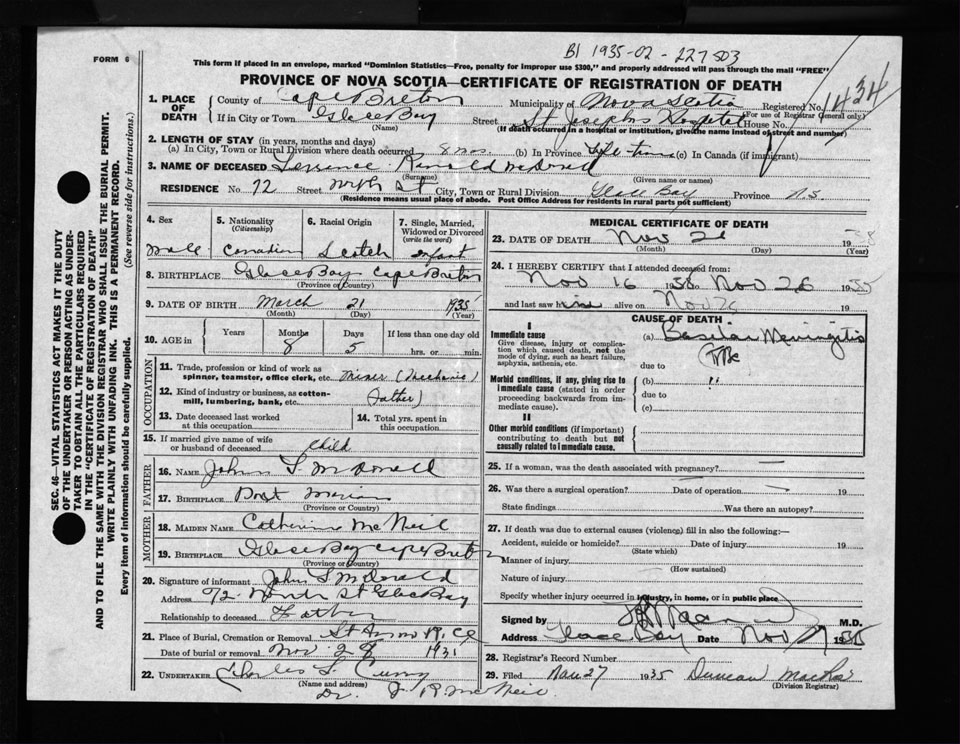 B1 1935-02-227503
FORM 6
This form if placed in an envelope, marked "Dominion Statistics—Free, penalty for improper use $300," and properly addressed will pass through the mail "FREE"
PROVINCE OF NOVA SCOTIA—CERTIFICATE OF REGISTRATION OF DEATH
1. PLACE OF DEATH County of Cape Breton Municipality of Nova Scotia Registered No. 1434
(For use of Registrar General only.)
If in City or Town Glace Bay Street St Josephs Hospital House No.
(Name) (If death occurred in a hospital or institution, give the name instead of street and number)
2. LENGTH OF STAY (in years, months and days)
(a) In City, Town or Rural Division where death occurred 8 mos. (b) In Province Life time (c) In Canada (if immigrant)
3. NAME OF DECEASED Ronald
(Surname) (Given name or names)
RESIDENCE No. 72 Street North St City, Town or Rural Division Glace Bay Province N.S.
(Residence means usual place of abode. Post Office Address for residents in rural parts not sufficient)
4. Sex Male
5. Nationality (Citizenship) Canadian
6. Racial Origin Scotch
7. Single, Married, Widowed or Divorced (write the word) infant
8. BIRTHPLACE Glace Bay Cape Breton
(Province or Country)
9. DATE OF BIRTH March 21 1935
(Month) (Day) (Year)
10. AGE in Years Months 8 Days 5 If less than one day old hrs. or min.
OCCUPATION
11. Trade, profession or kind of work as spinner, teamster, office clerk, etc. Miner (Mechanic)
12. Kind of industry or business, as cotton-mill, lumbering, bank, etc. (Father)
13. Date deceased last worked at this occupation
14. Total yrs. spent in this occupation
15. If married give name of wife or husband of deceased Child
FATHER
16. NAME John
17. BIRTHPLACE Port Morien
(Province or Country)
MOTHER
18. MAIDEN NAME Catherine McNeil
19. BIRTHPLACE Glace Bay Cape Breton
(Province or Country)
20. Signature of informant John
Address 72 North St Glace Bay
Relationship to deceased Father
21. Place of Burial, Cremation or Removal
Date of burial or removal Nov 28 1935
22. UNDERTAKER Charles
(Name and address)
Dr. J. R. McNeil
MEDICAL CERTIFICATE OF DEATH
23. DATE OF DEATH Nov 26 19
(Month) (Day) (Year)
24. I HEREBY CERTIFY that I attended deceased from:
Nov 16 to Nov 26 1935
and last saw him alive on Nov 26 19
CAUSE OF DEATH
I
Immediate cause
Give disease, injury or complication which caused death, not the mode of dying, such as heart failure, asphyxia, asthenia, etc.
(a) Basilar Meningitis
due to
Morbid conditions, if any, giving rise to immediate cause (stated in order proceeding backwards from immediate cause).
(b) "
due to
(c)
II
Other morbid conditions (if important) contributing to death but not causally related to immediate cause.
25. If a woman, was the death associated with pregnancy?
26. Was there a surgical operation? Date of operation 19
State findings Was there an autopsy?
27. If death was due to external causes (violence) fill in also the following:
Accident, suicide or homicide? Date of injury 19
(State which)
Manner of injury
(How sustained)
Nature of injury
Specify whether injury occurred in industry, in home, or in public place
Signed by M.D.
Address Glace Bay Date Nov 27 1935
28. Registrar's Record Number
29. Filed Nov 27 1935 Duncan
(Division Registrar)
SEC. 46—VITAL STATISTICS ACT MAKES IT THE DUTY
OF THE UNDERTAKER OR PERSON ACTING AS UNDER-
TAKER TO OBTAIN ALL THE PARTICULARS REQUIRED
IN THE "CERTIFICATE OF REGISTRATION OF DEATH"
AND TO FILE THE SAME WITH THE DIVISION REGISTRAR WHO SHALL ISSUE THE BURIAL PERMIT.
WRITE PLAINLY WITH UNFADING INK. THIS IS A PERMANENT RECORD.
Every item of information should be carefully supplied. (See reverse side for instructions.)